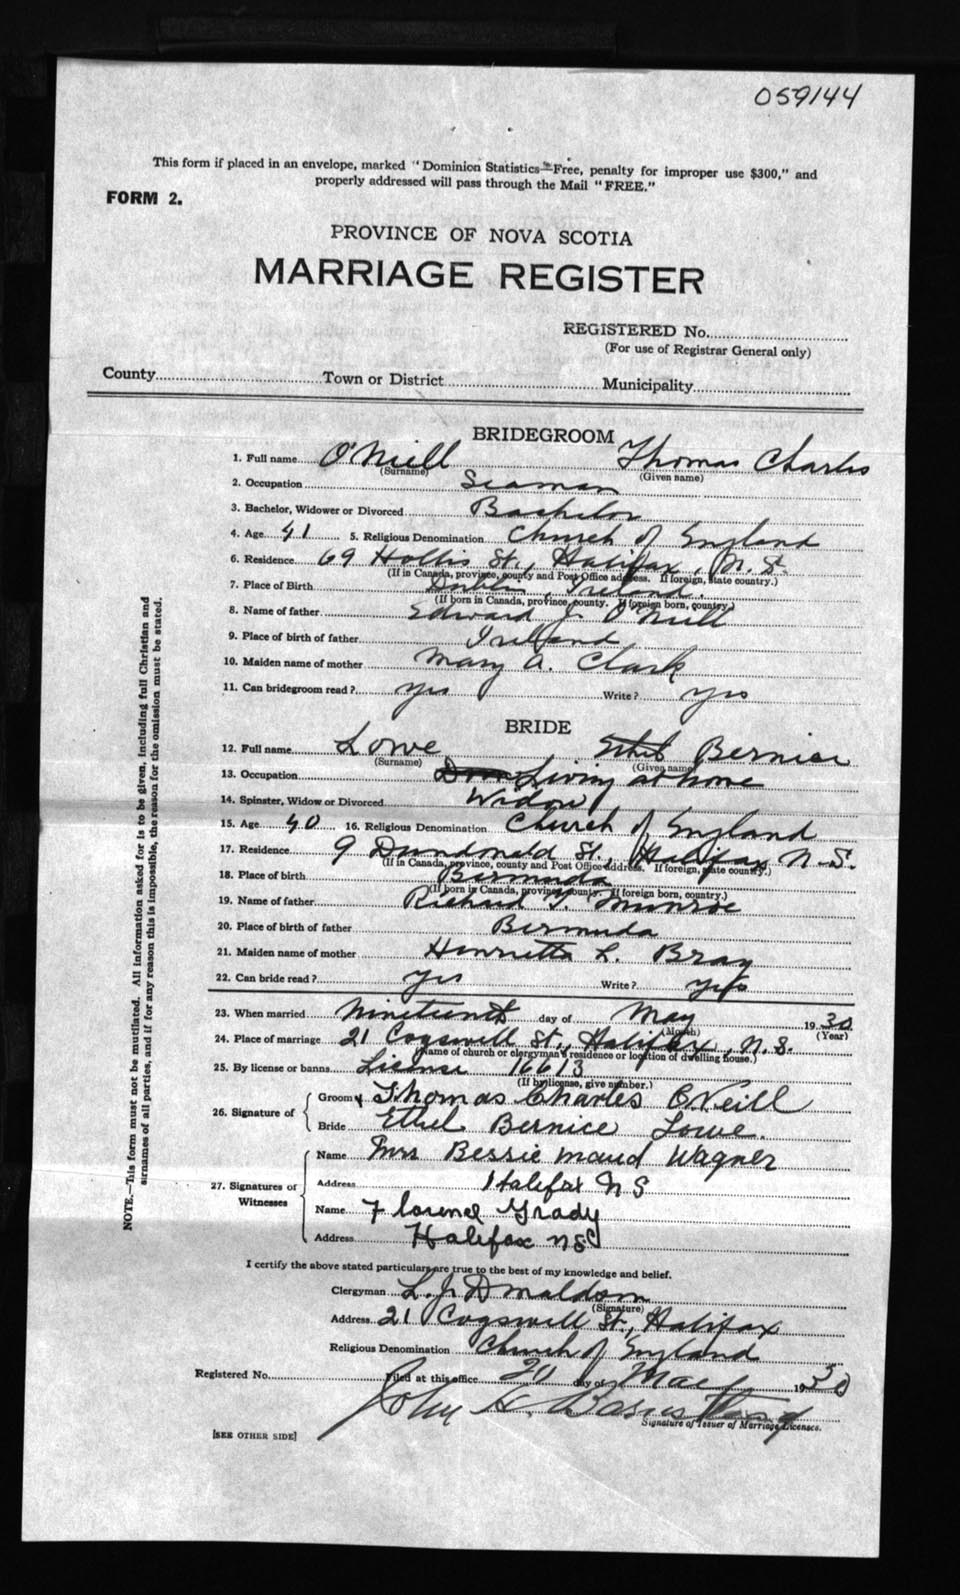 059144
This form if placed in an envelope, marked "Dominion Statistics—Free, penalty for improper use $300," and
properly addressed will pass through the Mail "FREE."
FORM 2.
PROVINCE OF NOVA SCOTIA
MARRIAGE REGISTER
REGISTERED No.
(For use of Registrar General only)
County Town or District Municipality
BRIDEGROOM
1. Full name O'Niell Thomas Charles
(Surname) (Given name)
2. Occupation Seaman
3. Bachelor, Widower or Divorced Bachelor
4. Age 41 5. Religious Denomination Church of England
6. Residence 69 Hollis St., Halifax, N.S.
(If in Canada, province, county and Post Office address. If foreign, state country.)
7. Place of Birth Dublin, Ireland.
(If born in Canada, province, county. If foreign born, country.)
8. Name of father Edward J. O'Niell
9. Place of birth of father Ireland
10. Maiden name of mother Mary A. Clark
11. Can bridegroom read? yes Write? yes
BRIDE
12. Full name Lowe Ethel Bernice
(Surname) (Given name)
13. Occupation Living at home
14. Spinster, Widow or Divorced Widow
15. Age 40 16. Religious Denomination Church of England
17. Residence 9 Dundonald St., Halifax N.S.
(If in Canada, province, county and Post Office address. If foreign, state country.)
18. Place of birth Bermuda
(If born in Canada, province, county. If foreign born, country.)
19. Name of father Richard T. Munroe
20. Place of birth of father Bermuda
21. Maiden name of mother Henrietta L. Bray
22. Can bride read? yes Write? yes
23. When married Nineteenth day of May 1930
(Month) (Year)
24. Place of marriage 21 Cogswell St., Halifax, N.S.
(Name of church or clergyman's residence or location of dwelling house.)
25. By license or banns License 16613
(If by license, give number.)
26. Signature of
Groom x Thomas Charles O'Neill
Bride Ethel Bernice Lowe.
27. Signatures of Witnesses
Name Mrs Bessie Maud Wagner
Address Halifax N S
Name Florence Grady
Address Halifax N S
I certify the above stated particulars are true to the best of my knowledge and belief.
Clergyman L. J. Donaldson
(Signature)
Address 21 Cogswell St., Halifax
Religious Denomination Church of England
Registered No. Filed at this office 20 day of May 1930
John H.
Signature of Issuer of Marriage Licenses.
[SEE OTHER SIDE]
NOTE.—This form must not be mutilated. All information asked for is to be given, including full Christian and
sirnames of all parties, and if for any reason this is impossible, the reason for the omission must be stated.